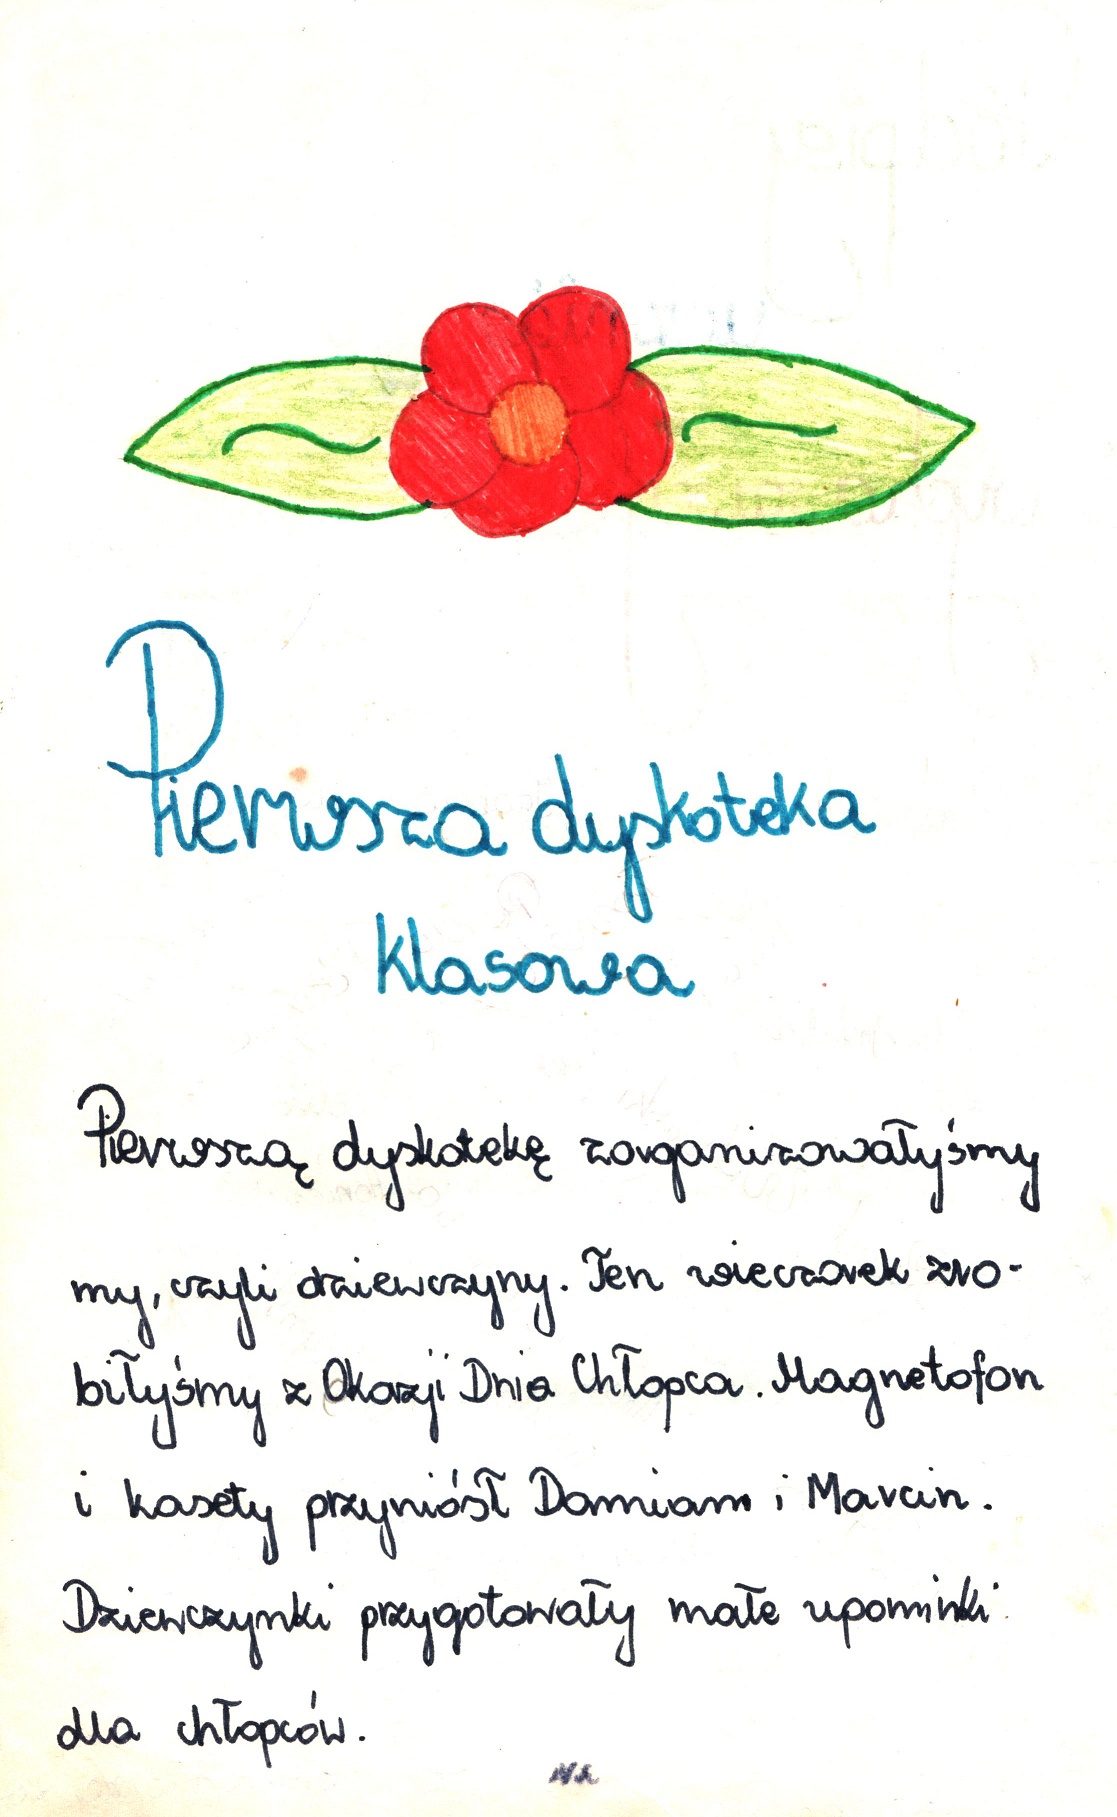 Pierwsza dyskoteka
klasowa
Pierwszą dyskotekę zorganizowałyśmy
my, czyli dziewczyny. Ten wieczorek zro-
biłyśmy z Okazji Dnia Chłopca. Magnetofon
i kasety przyniósł Damian i Marcin.
Dziewczynki przygotowały małe upominki
dla chłopców.